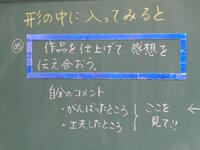 形の中に入ってみると
め
作品を仕上げて、感想を
伝え合おう。
自分のコメント
・がんばったところ
・工夫したところ
ここを
見て!!